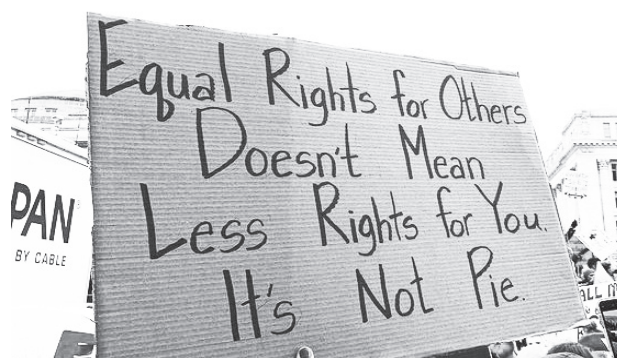 Equal Rights for Others
Doesn't Mean
Less Rights for You.
It's Not Pie.
PAN
BY CABLE
ALL